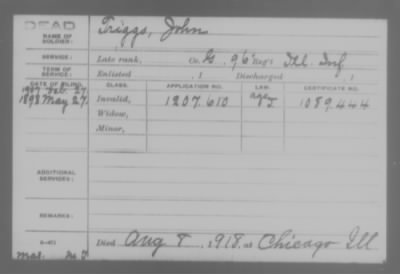 DEAD
NAME OF SOLDIER: Triggs, John
SERVICE: Late rank, Co. G. 96" Reg't Ill. Inf.
TERM OF SERVICE: Enlisted , 1 Discharged , 1
DATE OF FILING. CLASS. APPLICATION NO. LAW. CERTIFICATE NO.
1907 Feb. 27.
1898 May 27. Invalid, 1207.610 1089.444
Widow,
Minor,
ADDITIONAL SERVICES:
REMARKS:
Died Aug 8, 1918, at Chicago Ill